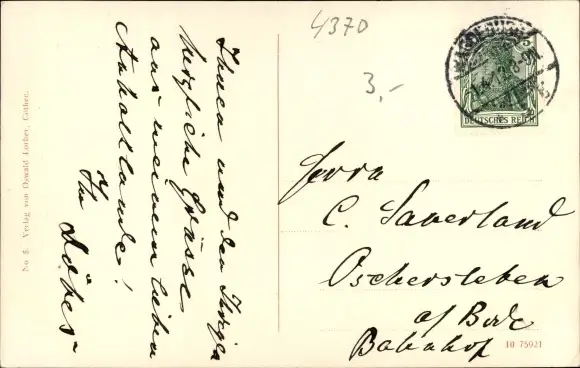 No 8. Verlag von Oswald Lorber, Cöthen.
Ihnen und den Ihrigen
herzliche Grüsse
aus meinem lieben
Anhaltlande!
Ihr
4370
3,-
DEUTSCHES REICH
Herrn
C. Sauerland
Oschersleben
a/ Bode
Bahnhof
10 75921